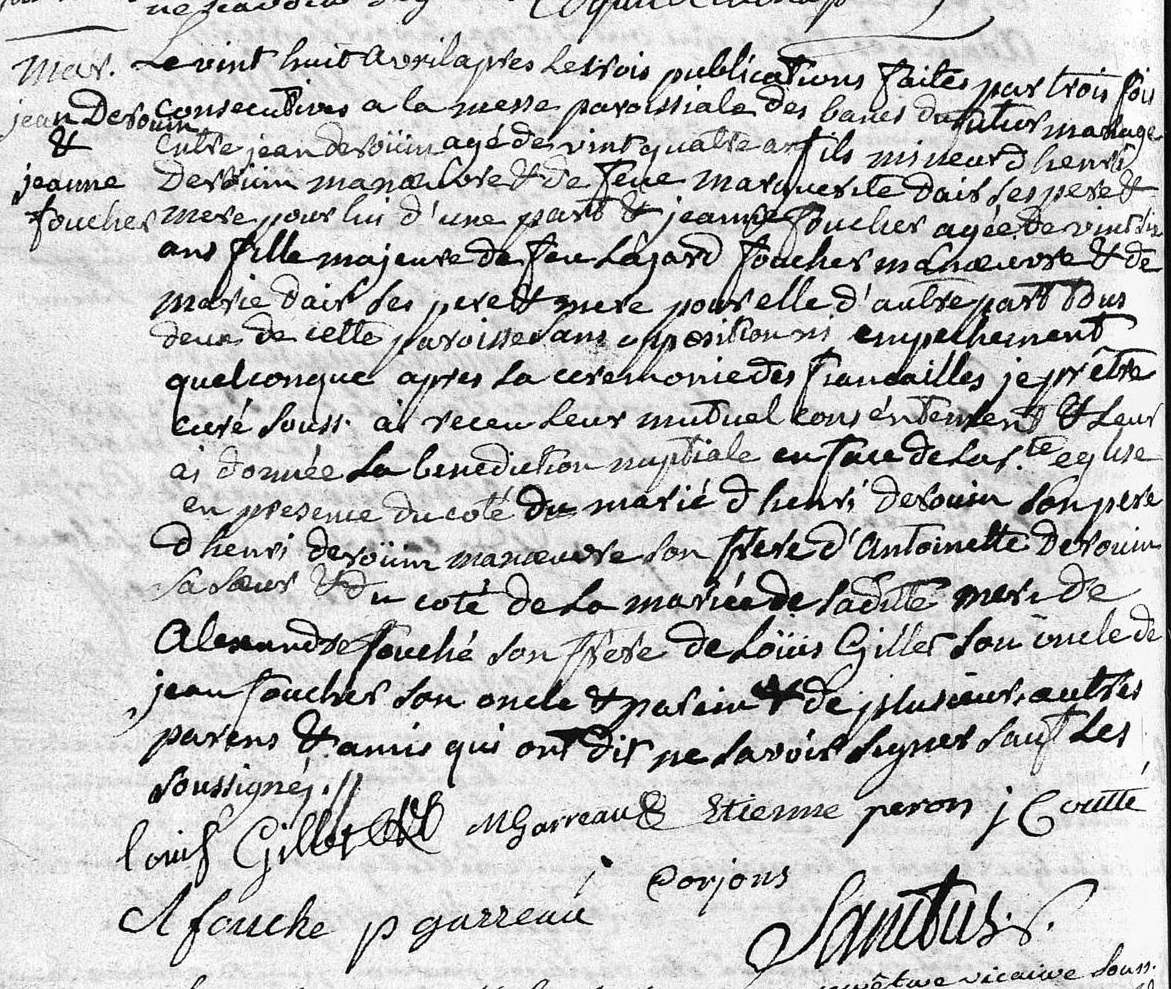 Mar.
jean Derouin
&
jeanne
foucher
Le vint huit Avril apres les trois publications faites par trois fois
consecutives a la messe paroissiale des bancs du futur mariage
entre jean deroüin agé de vint quatre ans fils mineur d henri
Deroüin manœuvre & de feue marguerite dair ses pere &
mere pour lui d'une part & jeanne foucher agée de vint six
ans fille majeure de feu Lazard foucher manœuvre & de
marie dair ses pere & mere pour elle d'autre part tous
deux de cette paroisse sans opposition ni empechement
quelconque apres la ceremonie des fiancailles je prêtre
curé souss. ai receu leur mutuel consentement & leur
ai donnée la benediction nuptiale en face de la s.te eglise
en presence du coté du marié d henri derouin son pere
d henri deroüin manœuvre son frere d'Antoinette Derouin
sa sœur & du coté de la mariée de ladite mere de
Alexandre fouché son frere de Loüis Gillet son oncle de
jean foucher son oncle & parein & de plusieurs autres
parens & amis qui ont dit ne savoir signer sauf les
soussignés.//
louis Gillet MGarreau Etienne peron j Coutté
A fouche p garreau Dorjons
Sanctus
vicaire souss.